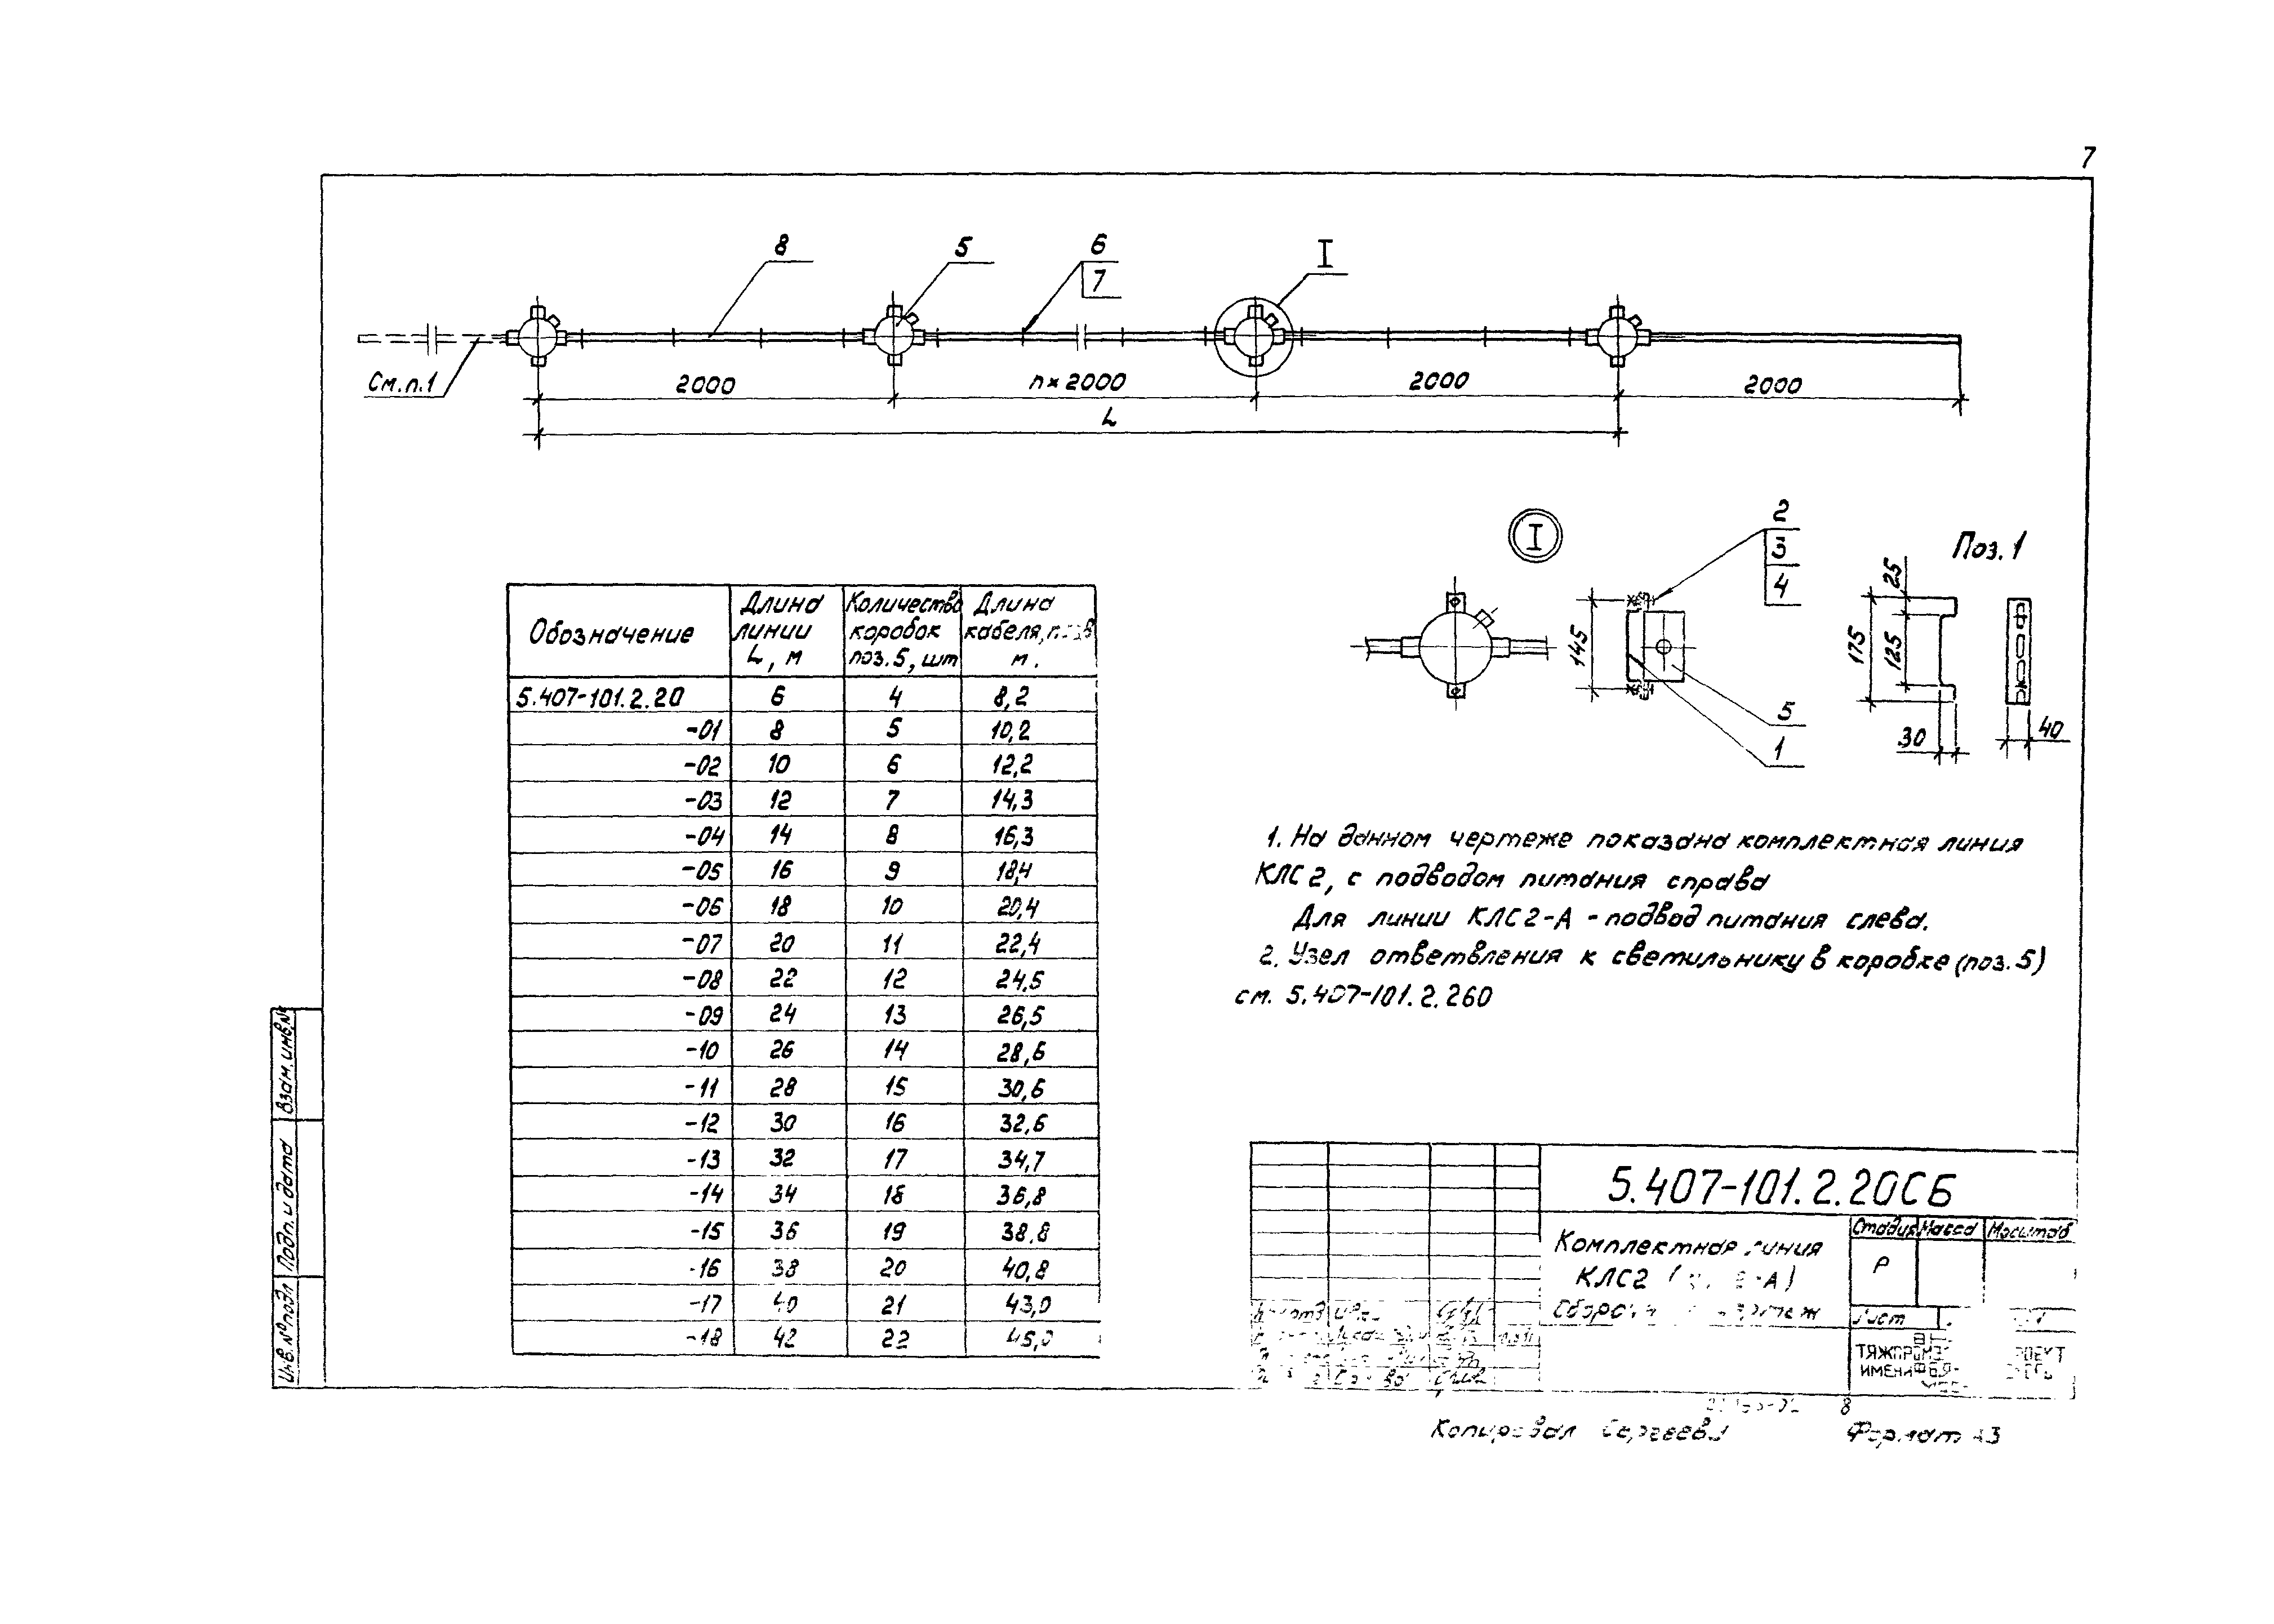 7
8
5
6
7
I
См.п.1
2000
n×2000
2000
2000
L
I
2
3
4
Поз. 1
145
5
1
25
175
125
30
40
Обозначение | Длина линии L, м | Количество коробок поз.5, шт | Длина кабеля, м.
5.407-101.2.20 | 6 | 4 | 8,2
-01 | 8 | 5 | 10,2
-02 | 10 | 6 | 12,2
-03 | 12 | 7 | 14,3
-04 | 14 | 8 | 16,3
-05 | 16 | 9 | 18,4
-06 | 18 | 10 | 20,4
-07 | 20 | 11 | 22,4
-08 | 22 | 12 | 24,5
-09 | 24 | 13 | 26,5
-10 | 26 | 14 | 28,6
-11 | 28 | 15 | 30,6
-12 | 30 | 16 | 32,6
-13 | 32 | 17 | 34,7
-14 | 34 | 18 | 36,8
-15 | 36 | 19 | 38,8
-16 | 38 | 20 | 40,8
-17 | 40 | 21 | 43,0
-18 | 42 | 22 | 45,0
1. На данном чертеже показана комплектная линия
КЛС2, с подводом питания справа
Для линии КЛС2-А - подвод питания слева.
2. Узел ответвления к светильнику в коробке (поз.5)
см. 5.407-101.2.260
Взам.инв.№
Подп. и дата
Инв.№подл
5.407-101.2.20СБ
Комплектная линия
КЛС2
Стадия Масса Масштаб
Р
Лист
ИМЕНИ
8
Копировал
Формат А3